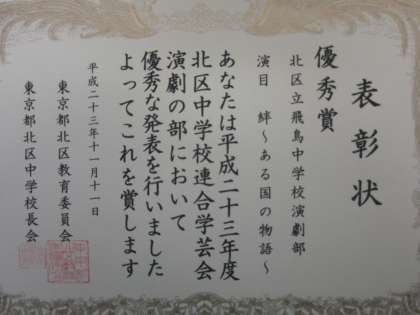 表彰状
優秀賞
北区立飛鳥中学校演劇部
演目 絆～ある国の物語～
あなたは平成二十三年度
北区中学校連合学芸会
演劇の部において
優秀な発表を行いました
よってこれを賞します
平成二十三年十一月十一日
東京都北区教育委員会
東京都北区中学校長会